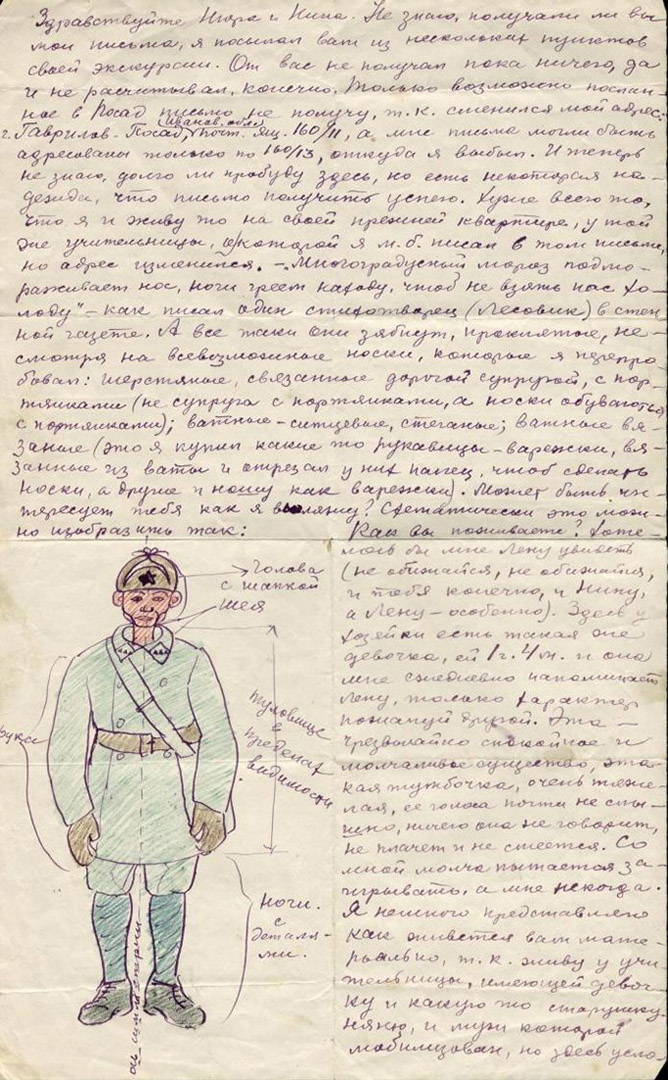 Здравствуйте Нюра и Нина. Не знаю, получали ли вы
мои письма, я посылал вам из нескольких пунктов
своей экскурсии. От вас не получал пока ничего, да
и не расчитывал, конечно. Только возможно послан-
ное в Посад письмо не получу, т.к. сменился мой адрес:
г. Гаврилов-Посад (Иванов. обл.) почт. ящ. 160/11, а мне письма могли быть
адресованы только по 160/13, откуда я выбыл. И теперь
не знаю, долго ли пробуду здесь, но есть некоторая на-
дежда, что письмо получить успею. Хуже всего то,
что я и живу то на своей прежней квартире, у той
же учительницы, о которой я м.б. писал в том письме,
но адрес изменился. – „Многоградусный мороз подмо-
раживает нос, ноги греем на ходу, чтоб не взять нас хо-
лоду" – как писал один стихотворец (Лесовик) в стен-
ной газете. А все таки они зябнут, проклятые, не-
смотря на всевозможные носки, которые я перепро-
бовал: шерстяные, связанные дорогой супругой, с пор-
тянками (не супруга с портянками, а носки обуваются
с портянками); ватные-ситцевые, стеганые; ватные вя-
заные (это я купил какие то рукавицы-варежки, вя-
занные из ваты и отрезал у них палец, чтоб сделать
носки, а другие я ношу как варежки). Может быть ин-
тересует тебя как я выгляжу? Схематически это мож-
но изобразить так:
Голова
с шапкой
шея
рука
туловище
в
пределах
видимости
Ноги.
с
деталя-
ми.
ось симметрии
Как вы поживаете? Хоте-
лось бы мне Лену увидеть
(не обижайся, не обижайся,
и тебя конечно, и Нину,
а Лену – особенно). Здесь у
хозяйки есть такая же
девочка, ей 1 г. 4 м. и она
мне ежедневно напоминает
Лену, только характер
пожалуй другой. Эта –
чрезвычайно спокойное и
молчаливое существо, эта-
кая тумбочка, очень тяже-
лая, ее голоса почти не слы-
шно, ничего она не говорит,
не плачет и не смеется. Со
мной молча пытается за-
игрывать, а мне некогда.
Я немного представляю
как живется вам мате-
рьяльно, т.к. живу у учи-
тельницы, имеющей девоч-
ку и какую то старушку
няню, и муж которой
мобилизован, но здесь усло-